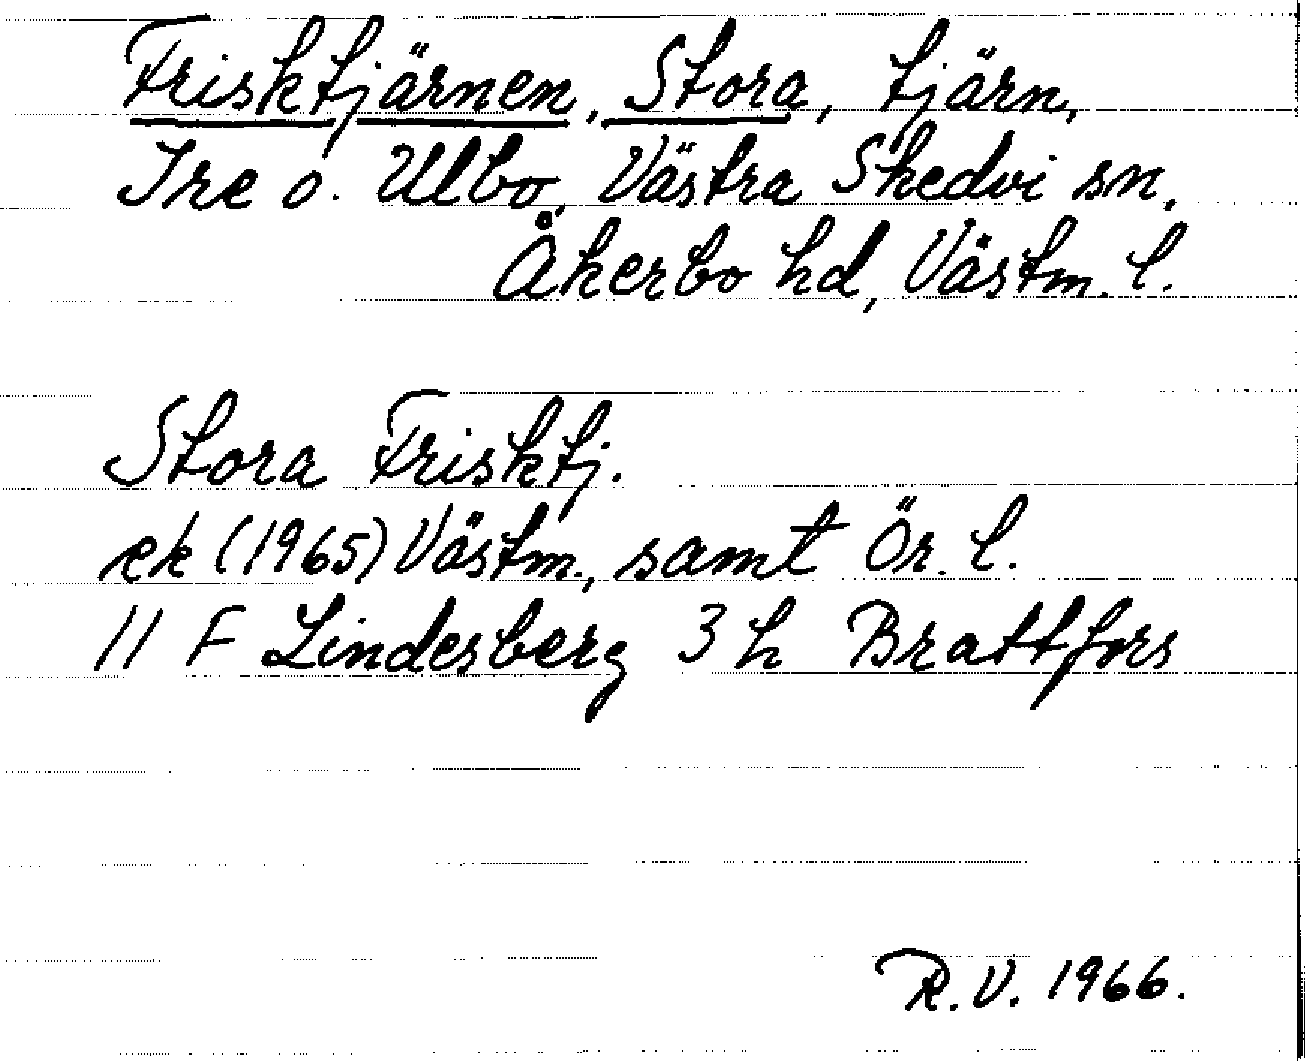 Frisktjärnen, Stora, tjärn,
Ire o. Ulbo, Västra Skedvi sn,
Åkerbo hd, Västm. l.
Stora Frisktj.
ek (1965) Västm., samt Ör. l.
11 F Lindesberg 3 h Brattfors
R.V. 1966.